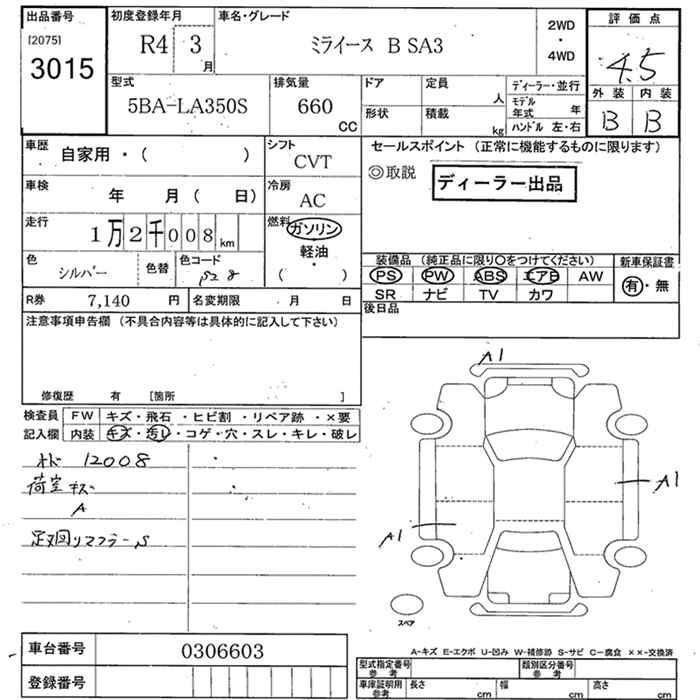 出品番号
[2075]
3015
初度登録年月
R4 3
月
車名・グレード
ミライース B SA3
2WD
・
4WD
評価点
4.5
外装 内装
B B
型式
5BA-LA350S
排気量
660
CC
ドア 定員
人
形状 積載
kg
ディーラー・並行
モデル年式 年
ハンドル 左・右
車歴
自家用・( )
シフト
CVT
車検
年 月( 日)
冷房
AC
走行
1万2千008km
燃料
ガソリン
・
軽油
( )
色
シルバー
色替
色コード
S28
R券 7,140 円
名変期限 ・月 日
セールスポイント (正常に機能するものに限ります)
◎取説
ディーラー出品
装備品 (純正品に限り○をつけてください)
PS PW ABS エアB AW
SR ナビ TV カワ
新車保証書
有・無
後日品
注意事項申告欄 (不具合内容等は具体的に記入して下さい)
修復歴 有 [箇所 ]
検査員
記入欄
FW キズ・飛石・ヒビ割・リペア跡・×要
内装 キズ・汚レ・コゲ・穴・スレ・キレ・破レ
オド 12008
荷室キズ
A
足廻リマフラーS
A1
A1
A1
スペア
A-キズ E-エクボ U-凹み W-補修跡 S-サビ C-腐食 ××-交換済
車台番号 0306603
登録番号
型式指定番号
参考
類別区分番号
参考
車庫証明用
参考
長さ cm 幅 cm 高さ cm